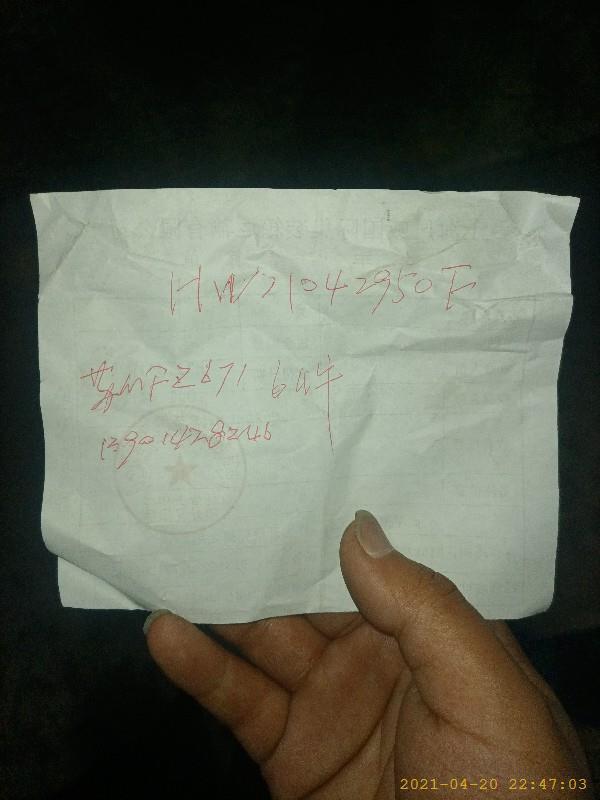 HW21042950F
苏MFZ671 6件
13901428246
2021-04-20 22:47:03